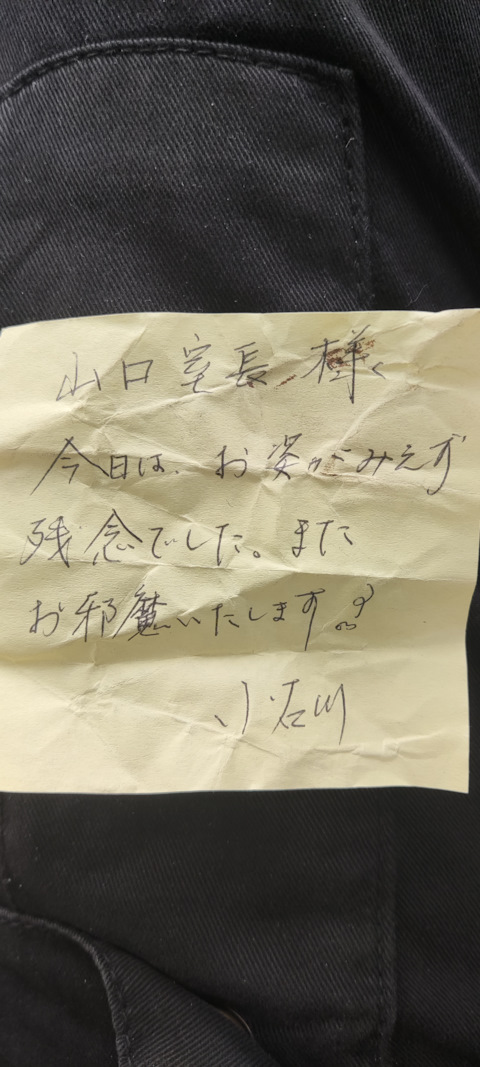 山口室長 様
今日は、お姿がみえず
残念でした。また
お邪魔いたします
小石川